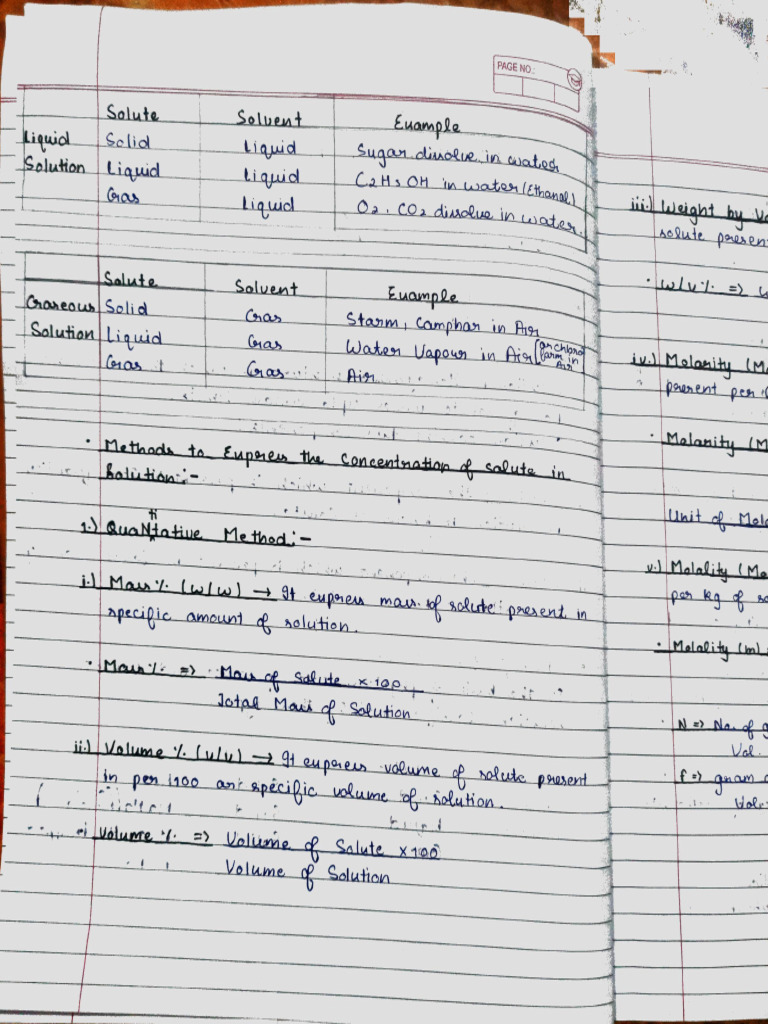 PAGE NO.:
Solute Solvent Example
Liquid Solid Liquid Sugar dissolve in water
Solution Liquid Liquid C2H5OH in water (Ethanol)
Gas Liquid O2, CO2 dissolve in water.
Solute Solvent Example
Gaseous Solid Gas Starm, Camphar in Air
Solution Liquid Gas Water Vapour in Air (or chloroform in Air
Gas Gas Air
· Methods to Express the Concentration of solute in
Solution:-
1.) Quantitative Method:-
i.) Mass % (w/w) → It express mass of solute present in
specific amount of solution.
· Mass % => Mass of Solute × 100
Total Mass of Solution
ii.) Volume % (v/v) → It express volume of solute present
in per 100 or specific volume of solution.
· Volume % => Volume of Solute × 100
Volume of Solution
iii.) Weight by
solute
· w/v % =>
iv.) Molarity
present per
· Molarity
Unit of
v.) Molality
per kg of
· Molality (m)
N => No. of
Vol.
f => gram